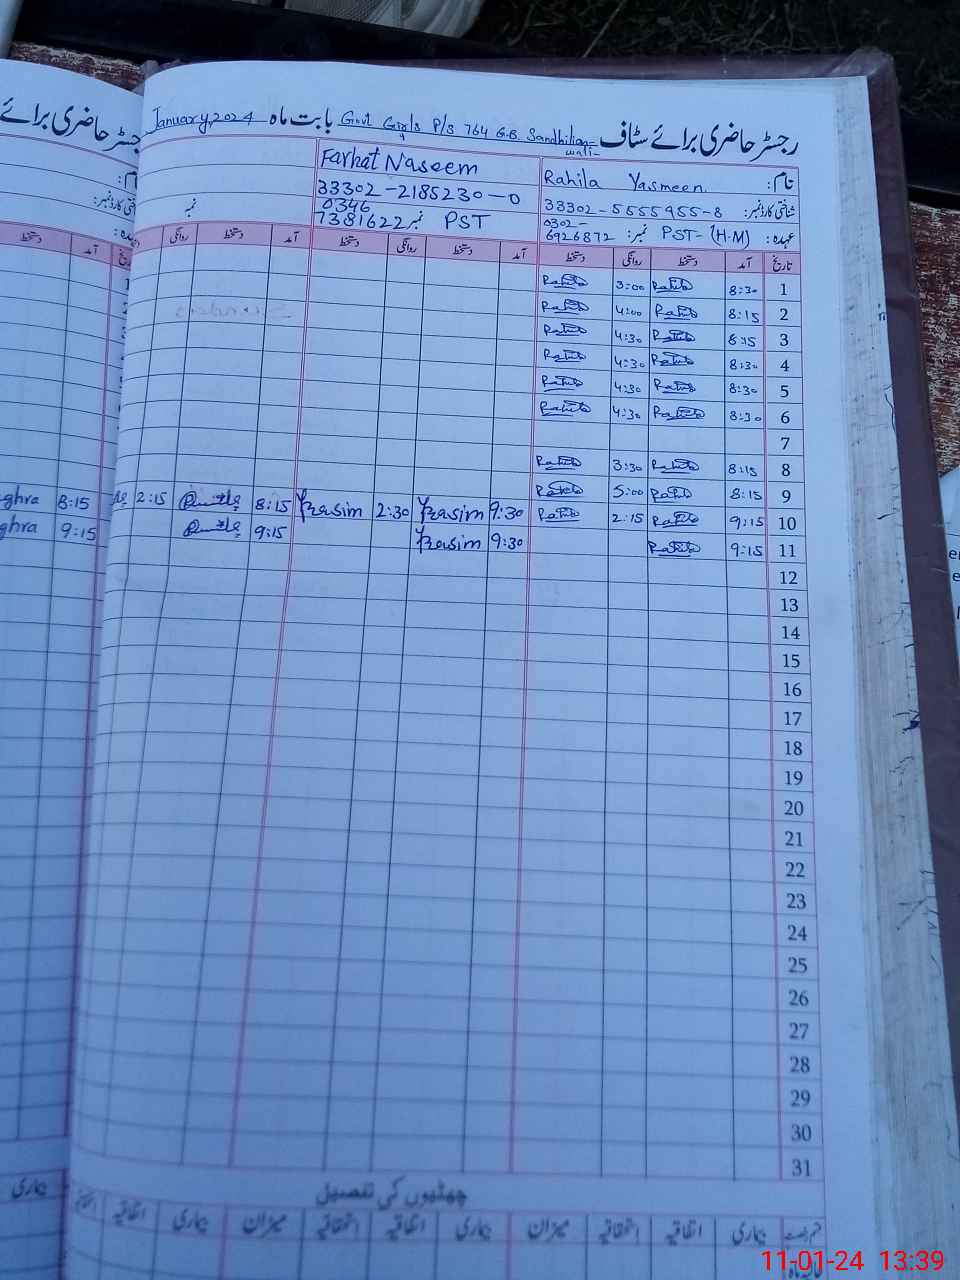 رجسٹر حاضری برائے سٹاف Govt Girls P/S 764 G.B. Sandhilian wali بابت ماہ January,2024
نام: Rahila Yasmeen
شناختی کارڈ نمبر: 33302-5555955-8
عہدہ: PST-(H.M) نمبر: 0302 6926872
Farhat Naseem
33302-2185230-0
0346
7381622 نمبر PST
نمبر
تاریخ آمد دستخط روانگی دستخط آمد دستخط روانگی دستخط آمد دستخط روانگی
تاریخ آمد دستخط
1 8:30 Rahila 3:00 Rahila
2 8:15 Rahila 4:00 Rahila
3 8:15 Rahila 4:30 Rahila
4 8:30 Rahila 4:30 Rahila
5 8:30 Rahila 4:30 Rahila
6 8:30 Rahila 4:30 Rahila
7
8 8:15 Rahila 3:30 Rahila
9 8:15 Rahila 5:00 Rahila
10 9:15 Rahila 2:15 Rahila 9:30 2:30 8:15 2:15 8:15 ghra
11 9:15 Rahila 9:30 9:15 9:15 ghra
12
13
14
15
16
17
18
19
20
21
22
23
24
25
26
27
28
29
30
31
چھٹیوں کی تفصیل
بیماری اتفاقیہ استحقاقیہ میزان بیماری اتفاقیہ استحقاقیہ میزان بیماری اتفاقیہ
بیماری
11-01-24 13:39